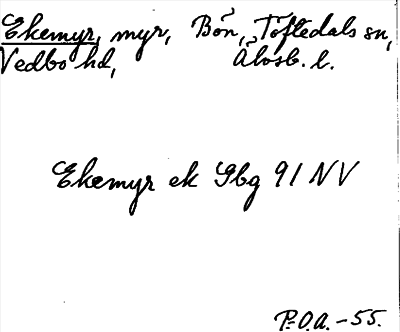 Ekemyr, myr, Bön, Töftedals sn,
Vedbo hd, Älvsb. l.
Ekemyr ek Gbg 91 NV
P.O.A. - 55.